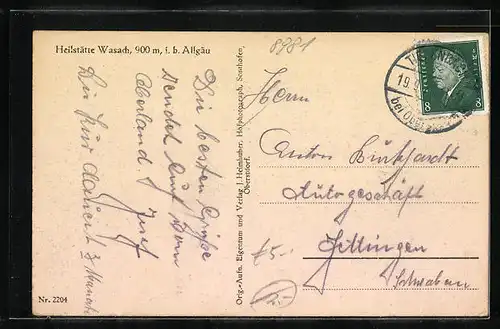 Heilstätte Wasach, 900 m, i. b. Allgäu
8981
Die besten Grüße
sendet aus dem
Oberland
Josef
Die Kur dauert 3 Monate
Nr. 2204
Org.-Aufn. Eigentum und Verlag J. Heimhuber, Hofphotograph, Sonthofen,
Oberstdorf.
Herrn
Anton Burkhardt
Autogeschäft
Jettingen
Schwaben
£5.-
8 8
19.